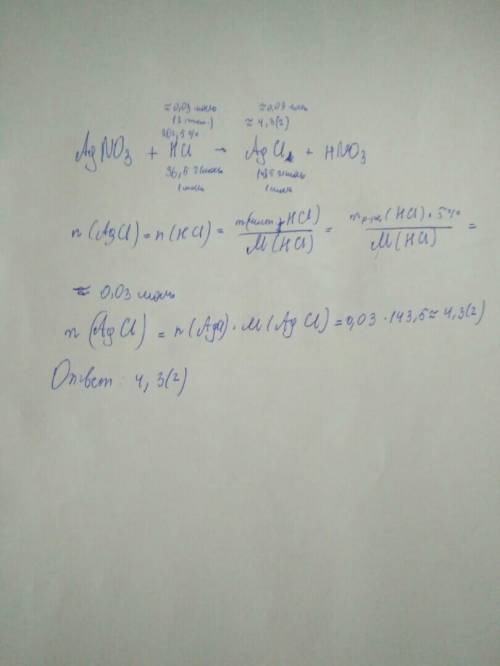 ≈ 0,03 моль ≈ 0,03 моль
≈ 4,3(г)
AgNO3 + HCl → AgCl↓ + HNO3
36,5 г/моль
1 моль 1 моль
n(AgCl) = n(HCl) = m(HCl) / M(HCl) = m р-ра (HCl) · 5% / M(HCl) =
≈ 0,03 моль
(AgCl) = n(AgCl) · M(AgCl) = 0,03 · 143,5 ≈ 4,3(г)
Ответ: 4,3(г)